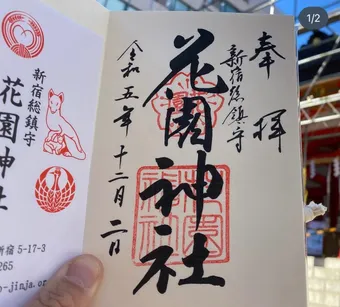 1/2
奉拝
新宿総鎮守
花園神社
令和五年十二月二日
花園神社
新宿総鎮守
花園神社
新宿5-17-3
265
o-jinja.or